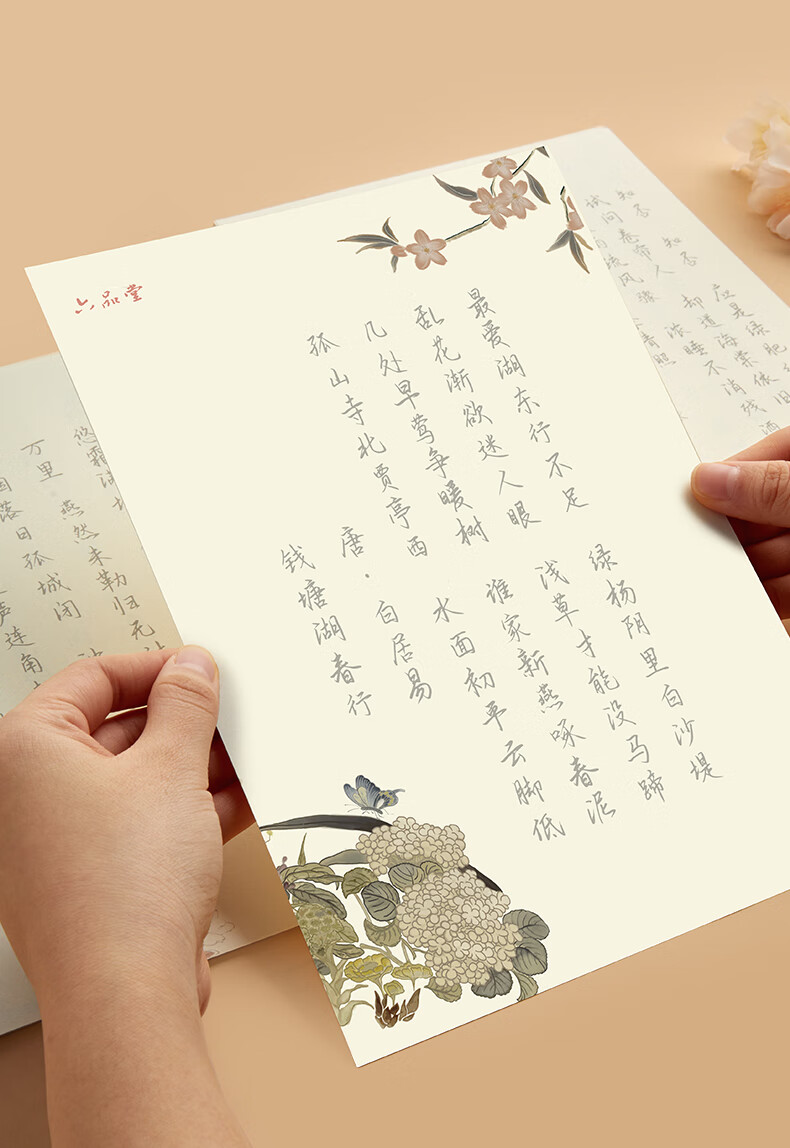 六品堂
钱塘湖春行
唐·白居易
孤山寺北贾亭西 水面初平云脚低
几处早莺争暖树 谁家新燕啄春泥
乱花渐欲迷人眼 浅草才能没马蹄
最爱湖东行不足 绿杨阴里白沙堤
声连角
落日孤城闭
万里 燕然未勒归无
悠霜满
疏风骤 浓睡不消残酒
试问卷帘人 却道海棠依旧
知否 知否 应是绿肥